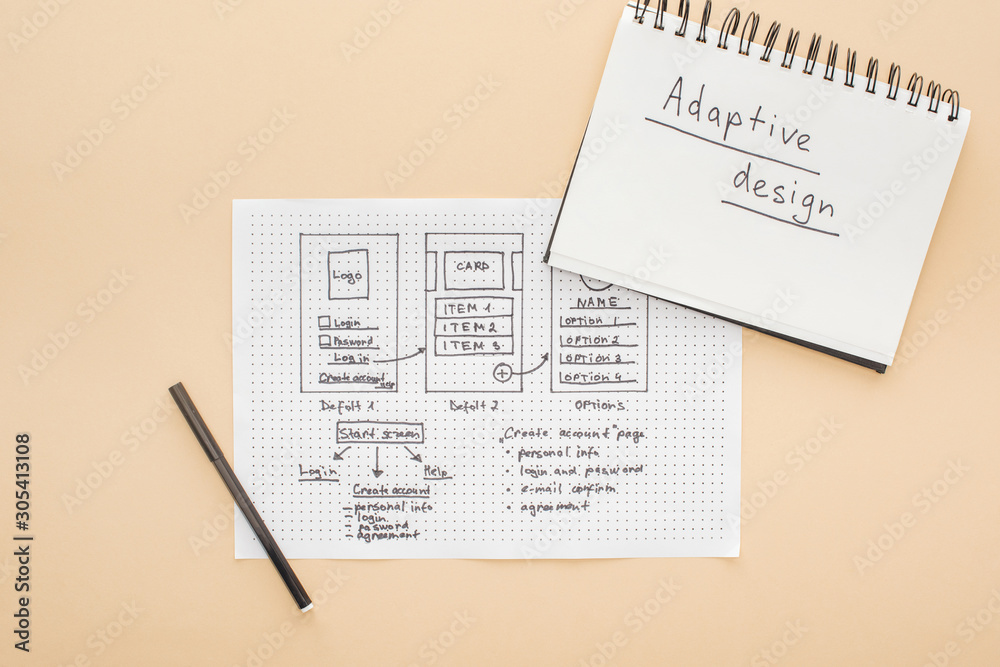 Adaptive
design
Logo
Login
Password
Log in
Create account
Help
Defolt 1
CARD
ITEM 1
ITEM 2
ITEM 3
+
Defolt 2
NAME
OPTION 1
OPTION 2
OPTION 3
OPTION 4
OPTIONS
Start screen
Login
Help
Create account
- personal info
- login
- password
- agreement
„Create account" page
• personal info
• login and password
• e-mail confirm
• agreement
Adobe Stock | #305413108
Adobe Stock